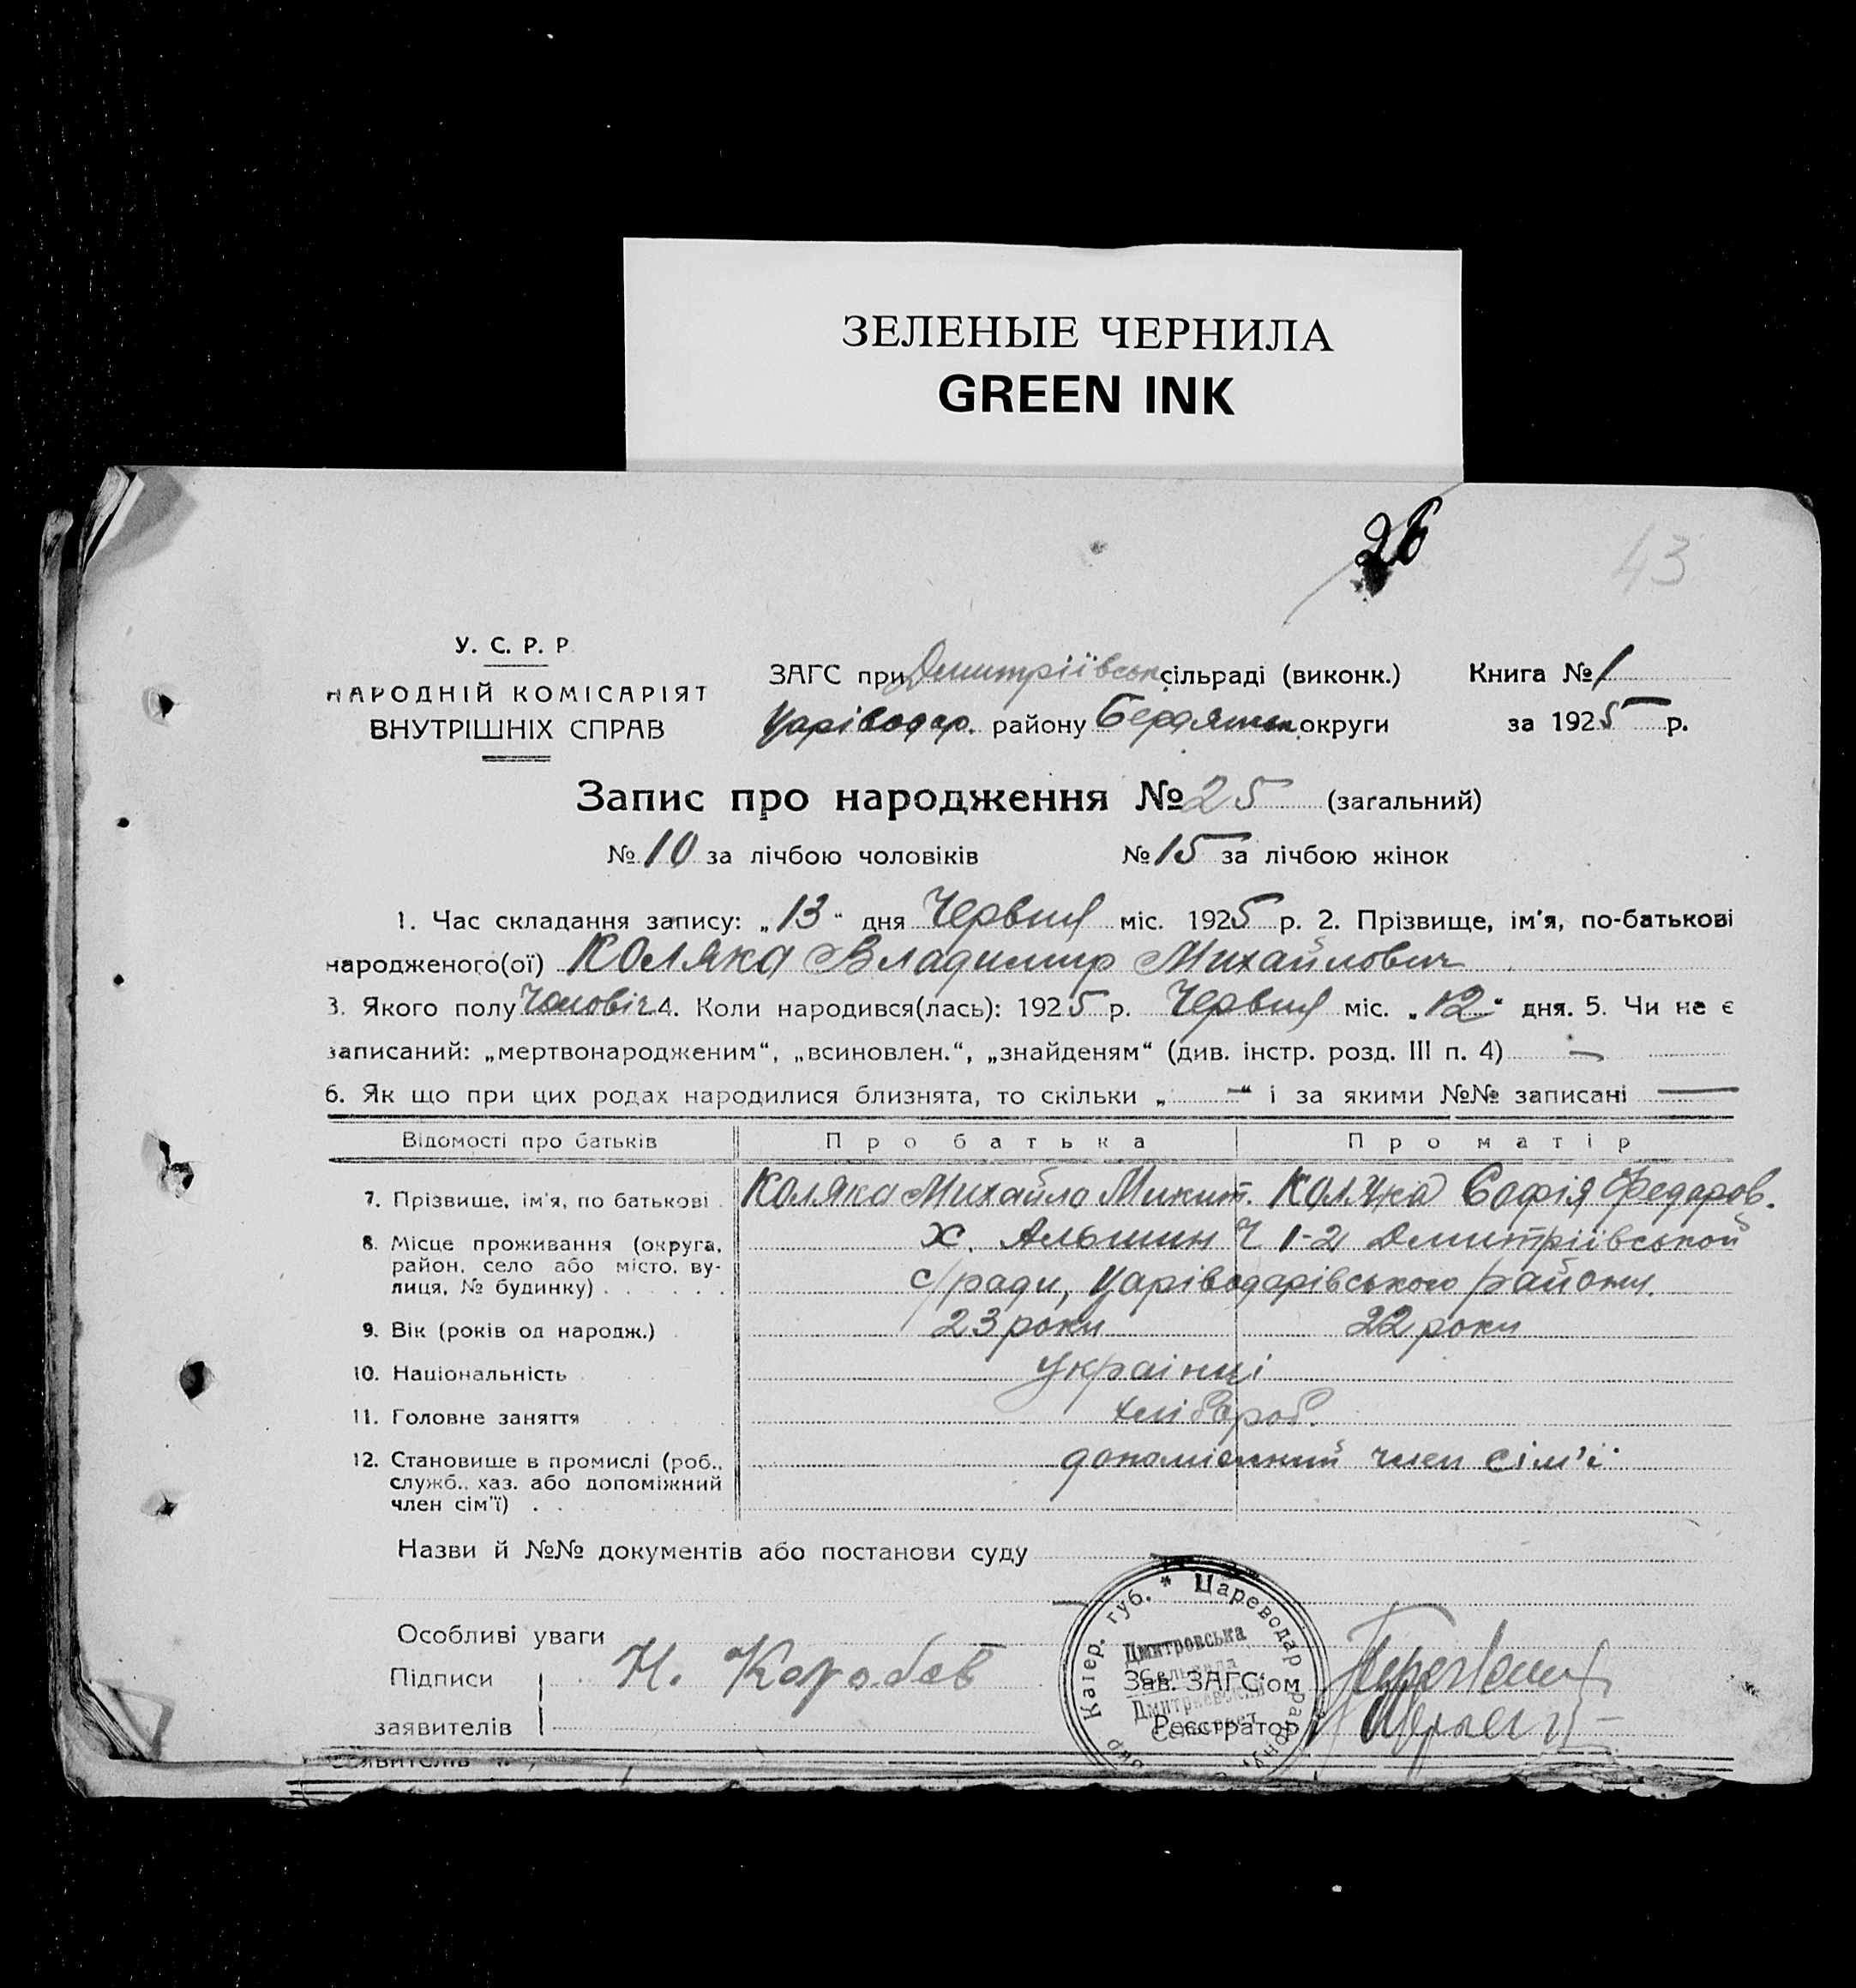 ЗЕЛЕНЫЕ ЧЕРНИЛА
GREEN INK
26
43
У. С. Р. Р
НАРОДНІЙ КОМІСАРІЯТ
ВНУТРІШНІХ СПРАВ
ЗАГС при Дмитріївськ сільраді (виконк.) Книга № 1
Царіводар. району Бердянськ округи за 1925 р.
Запис про народження № 25 (загальний)
№ 10 за лічбою чоловіків № 15 за лічбою жінок
1. Час складання запису: „13“ дня Червня міс. 1925 р. 2. Прізвище, ім'я, по-батькові
народженого(ої) Коляка Владимир Михайлович
3. Якого полу Чоловіч 4. Коли народився(лась): 1925 р. Червня міс. „12“ дня. 5. Чи не є
записаний: „мертвонародженим“, „всиновлен.“, „знайденям“ (див. інстр. розд. III п. 4) —
6. Як що при цих родах народилися близнята, то скільки „—“ і за якими №№ записані —
Відомості про батьків Про батька Про матір
7. Прізвище, ім'я, по батькові Коляка Михайло Микит. Коляка Софія Федоров.
8. Місце проживання (округа, х. Альшин Ч 1-2 Дмитріівськой
район, село або місто, ву-
лиця, № будинку) с/ради, Царіводарівського району.
9. Вік (років од народж.) 23 роки 22 роки
10. Національність Украінці
11. Головне заняття хлібороб.
12. Становище в промислі (роб., член сім'і
служб., хаз. або допоміжний
член сім'ї)
Назви й №№ документів або постанови суду
Особливі уваги
Підписи Н. Коробов Зав. ЗАГС'ом
заявителів Реєстратор
Катер. губ. * Цареводар
Дмитровська